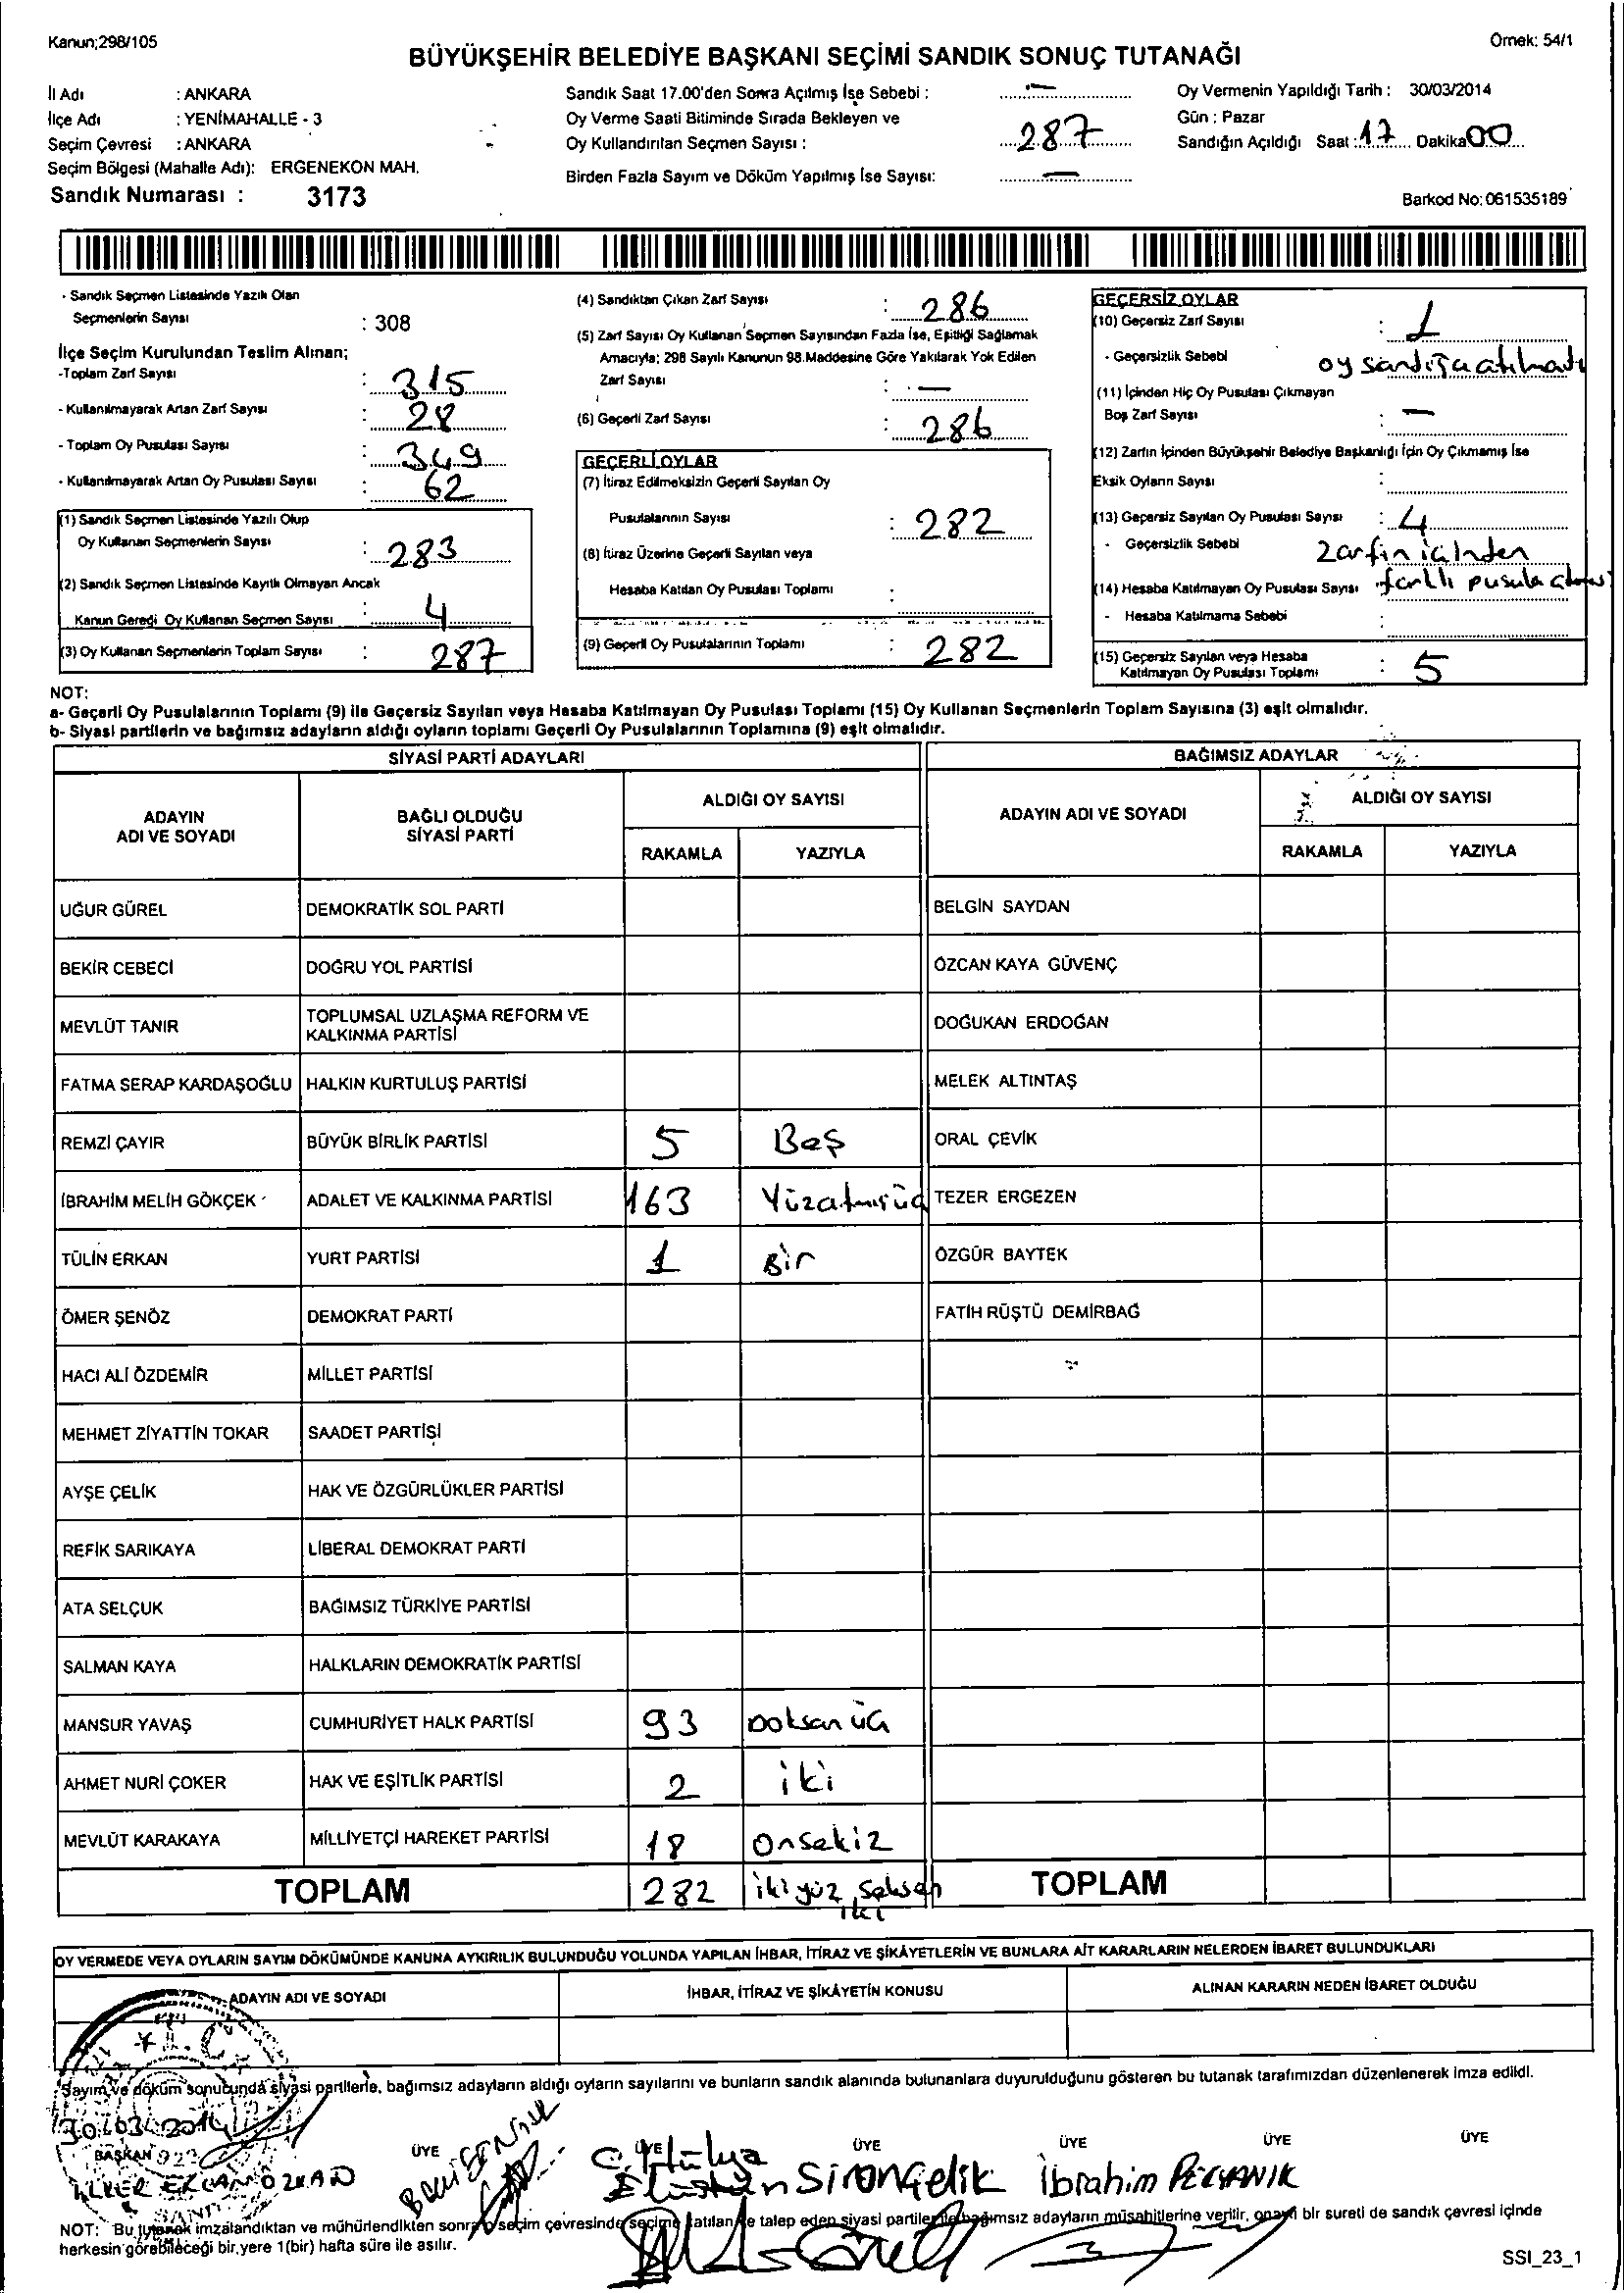 Kanun;298/105
Örnek: 54/1
BÜYÜKŞEHİR BELEDİYE BAŞKANI SEÇİMİ SANDIK SONUÇ TUTANAĞI
İl Adı : ANKARA
İlçe Adı : YENİMAHALLE - 3
Seçim Çevresi : ANKARA
Seçim Bölgesi (Mahalle Adı): ERGENEKON MAH.
Sandık Numarası : 3173
Sandık Saat 17.00'den Sonra Açılmış İse Sebebi : —
Oy Verme Saati Bitiminde Sırada Bekleyen ve
Oy Kullandırılan Seçmen Sayısı : 287
Birden Fazla Sayım ve Döküm Yapılmış İse Sayısı: —
Oy Vermenin Yapıldığı Tarih : 30/03/2014
Gün : Pazar
Sandığın Açıldığı Saat : 17 Dakika 00
Barkod No: 061535189
- Sandık Seçmen Listesinde Yazılı Olan
Seçmenlerin Sayısı : 308
İlçe Seçim Kurulundan Teslim Alınan;
-Toplam Zarf Sayısı : 315
- Kullanılmayarak Artan Zarf Sayısı : 28
- Toplam Oy Pusulası Sayısı : 349
- Kullanılmayarak Artan Oy Pusulası Sayısı : 62
(1) Sandık Seçmen Listesinde Yazılı Olup
Oy Kullanan Seçmenlerin Sayısı : 283
(2) Sandık Seçmen Listesinde Kayıtlı Olmayan Ancak
Kanun Gereği Oy Kullanan Seçmen Sayısı : 4
(3) Oy Kullanan Seçmenlerin Toplam Sayısı : 287
(4) Sandıktan Çıkan Zarf Sayısı : 286
(5) Zarf Sayısı Oy Kullanan Seçmen Sayısından Fazla İse, Eşitliği Sağlamak
Amacıyla; 298 Sayılı Kanunun 98.Maddesine Göre Yakılarak Yok Edilen
Zarf Sayısı : —
(6) Geçerli Zarf Sayısı : 286
GEÇERLİ OYLAR
(7) İtiraz Edilmeksizin Geçerli Sayılan Oy
Pusulalarının Sayısı : 282
(8) İtiraz Üzerine Geçerli Sayılan veya
Hesaba Katılan Oy Pusulası Toplamı :
(9) Geçerli Oy Pusulalarının Toplamı : 282
GEÇERSİZ OYLAR
(10) Geçersiz Zarf Sayısı : 1
- Geçersizlik Sebebi oy sandığa atılmadı
(11) İçinden Hiç Oy Pusulası Çıkmayan
Boş Zarf Sayısı : —
(12) Zarfın İçinden Büyükşehir Belediye Başkanlığı İçin Oy Çıkmamış İse
Eksik Oyların Sayısı :
(13) Geçersiz Sayılan Oy Pusulası Sayısı : 4
- Geçersizlik Sebebi zarfın içinden
farklı pusula
(14) Hesaba Katılmayan Oy Pusulası Sayısı
- Hesaba Katılmama Sebebi :
(15) Geçersiz Sayılan veya Hesaba
Katılmayan Oy Pusulası Toplamı : 5
NOT:
a- Geçerli Oy Pusulalarının Toplamı (9) ile Geçersiz Sayılan veya Hesaba Katılmayan Oy Pusulası Toplamı (15) Oy Kullanan Seçmenlerin Toplam Sayısına (3) eşit olmalıdır.
b- Siyasi partilerin ve bağımsız adayların aldığı oyların toplamı Geçerli Oy Pusulalarının Toplamına (9) eşit olmalıdır.
SİYASİ PARTİ ADAYLARI
BAĞIMSIZ ADAYLAR
ADAYIN
ADI VE SOYADI
BAĞLI OLDUĞU
SİYASİ PARTİ
ALDIĞI OY SAYISI
RAKAMLA YAZIYLA
ADAYIN ADI VE SOYADI
ALDIĞI OY SAYISI
RAKAMLA YAZIYLA
UĞUR GÜREL DEMOKRATİK SOL PARTİ BELGİN SAYDAN
BEKİR CEBECİ DOĞRU YOL PARTİSİ ÖZCAN KAYA GÜVENÇ
MEVLÜT TANIR TOPLUMSAL UZLAŞMA REFORM VE
KALKINMA PARTİSİ DOĞUKAN ERDOĞAN
FATMA SERAP KARDAŞOĞLU HALKIN KURTULUŞ PARTİSİ MELEK ALTINTAŞ
REMZİ ÇAYIR BÜYÜK BİRLİK PARTİSİ 5 Beş ORAL ÇEVİK
İBRAHİM MELİH GÖKÇEK ADALET VE KALKINMA PARTİSİ 163 Yüzatmışüç TEZER ERGEZEN
TÜLİN ERKAN YURT PARTİSİ 1 Bir ÖZGÜR BAYTEK
ÖMER ŞENÖZ DEMOKRAT PARTİ FATİH RÜŞTÜ DEMİRBAĞ
HACI ALİ ÖZDEMİR MİLLET PARTİSİ
MEHMET ZİYATTİN TOKAR SAADET PARTİSİ
AYŞE ÇELİK HAK VE ÖZGÜRLÜKLER PARTİSİ
REFİK SARIKAYA LİBERAL DEMOKRAT PARTİ
ATA SELÇUK BAĞIMSIZ TÜRKİYE PARTİSİ
SALMAN KAYA HALKLARIN DEMOKRATİK PARTİSİ
MANSUR YAVAŞ CUMHURİYET HALK PARTİSİ 93 Doksan üç
AHMET NURİ ÇOKER HAK VE EŞİTLİK PARTİSİ 2 iki
MEVLÜT KARAKAYA MİLLİYETÇİ HAREKET PARTİSİ 18 Onsekiz
TOPLAM 282 ikiyüz seksen
iki
TOPLAM
OY VERMEDE VEYA OYLARIN SAYIM DÖKÜMÜNDE KANUNA AYKIRILIK BULUNDUĞU YOLUNDA YAPILAN İHBAR, İTİRAZ VE ŞİKÂYETLERİN VE BUNLARA AİT KARARLARIN NELERDEN İBARET BULUNDUKLARI
ADAYIN ADI VE SOYADI
İHBAR, İTİRAZ VE ŞİKÂYETİN KONUSU
ALINAN KARARIN NEDEN İBARET OLDUĞU
T.C.
Sayım ve döküm sonucunda siyasi partilerle, bağımsız adayların aldığı oyların sayılarını ve bunların sandık alanında bulunanlara duyurulduğunu gösteren bu tutanak tarafımızdan düzenlenerek imza edildi.
30.03.2014
BAŞKAN
ÜYE ÜYE ÜYE ÜYE ÜYE ÜYE
ÖZKAN
Hülya
Sirançelik
İbrahim
NOT: Bu tutanak imzalandıktan ve mühürlendikten sonra o seçim çevresinde seçime katılan ve talep eden siyasi partiler ile bağımsız adayların müşahitlerine verilir, onaylı bir sureti de sandık çevresi içinde
herkesin görebileceği bir yere 1(bir) hafta süre ile asılır.
SSI_23_1